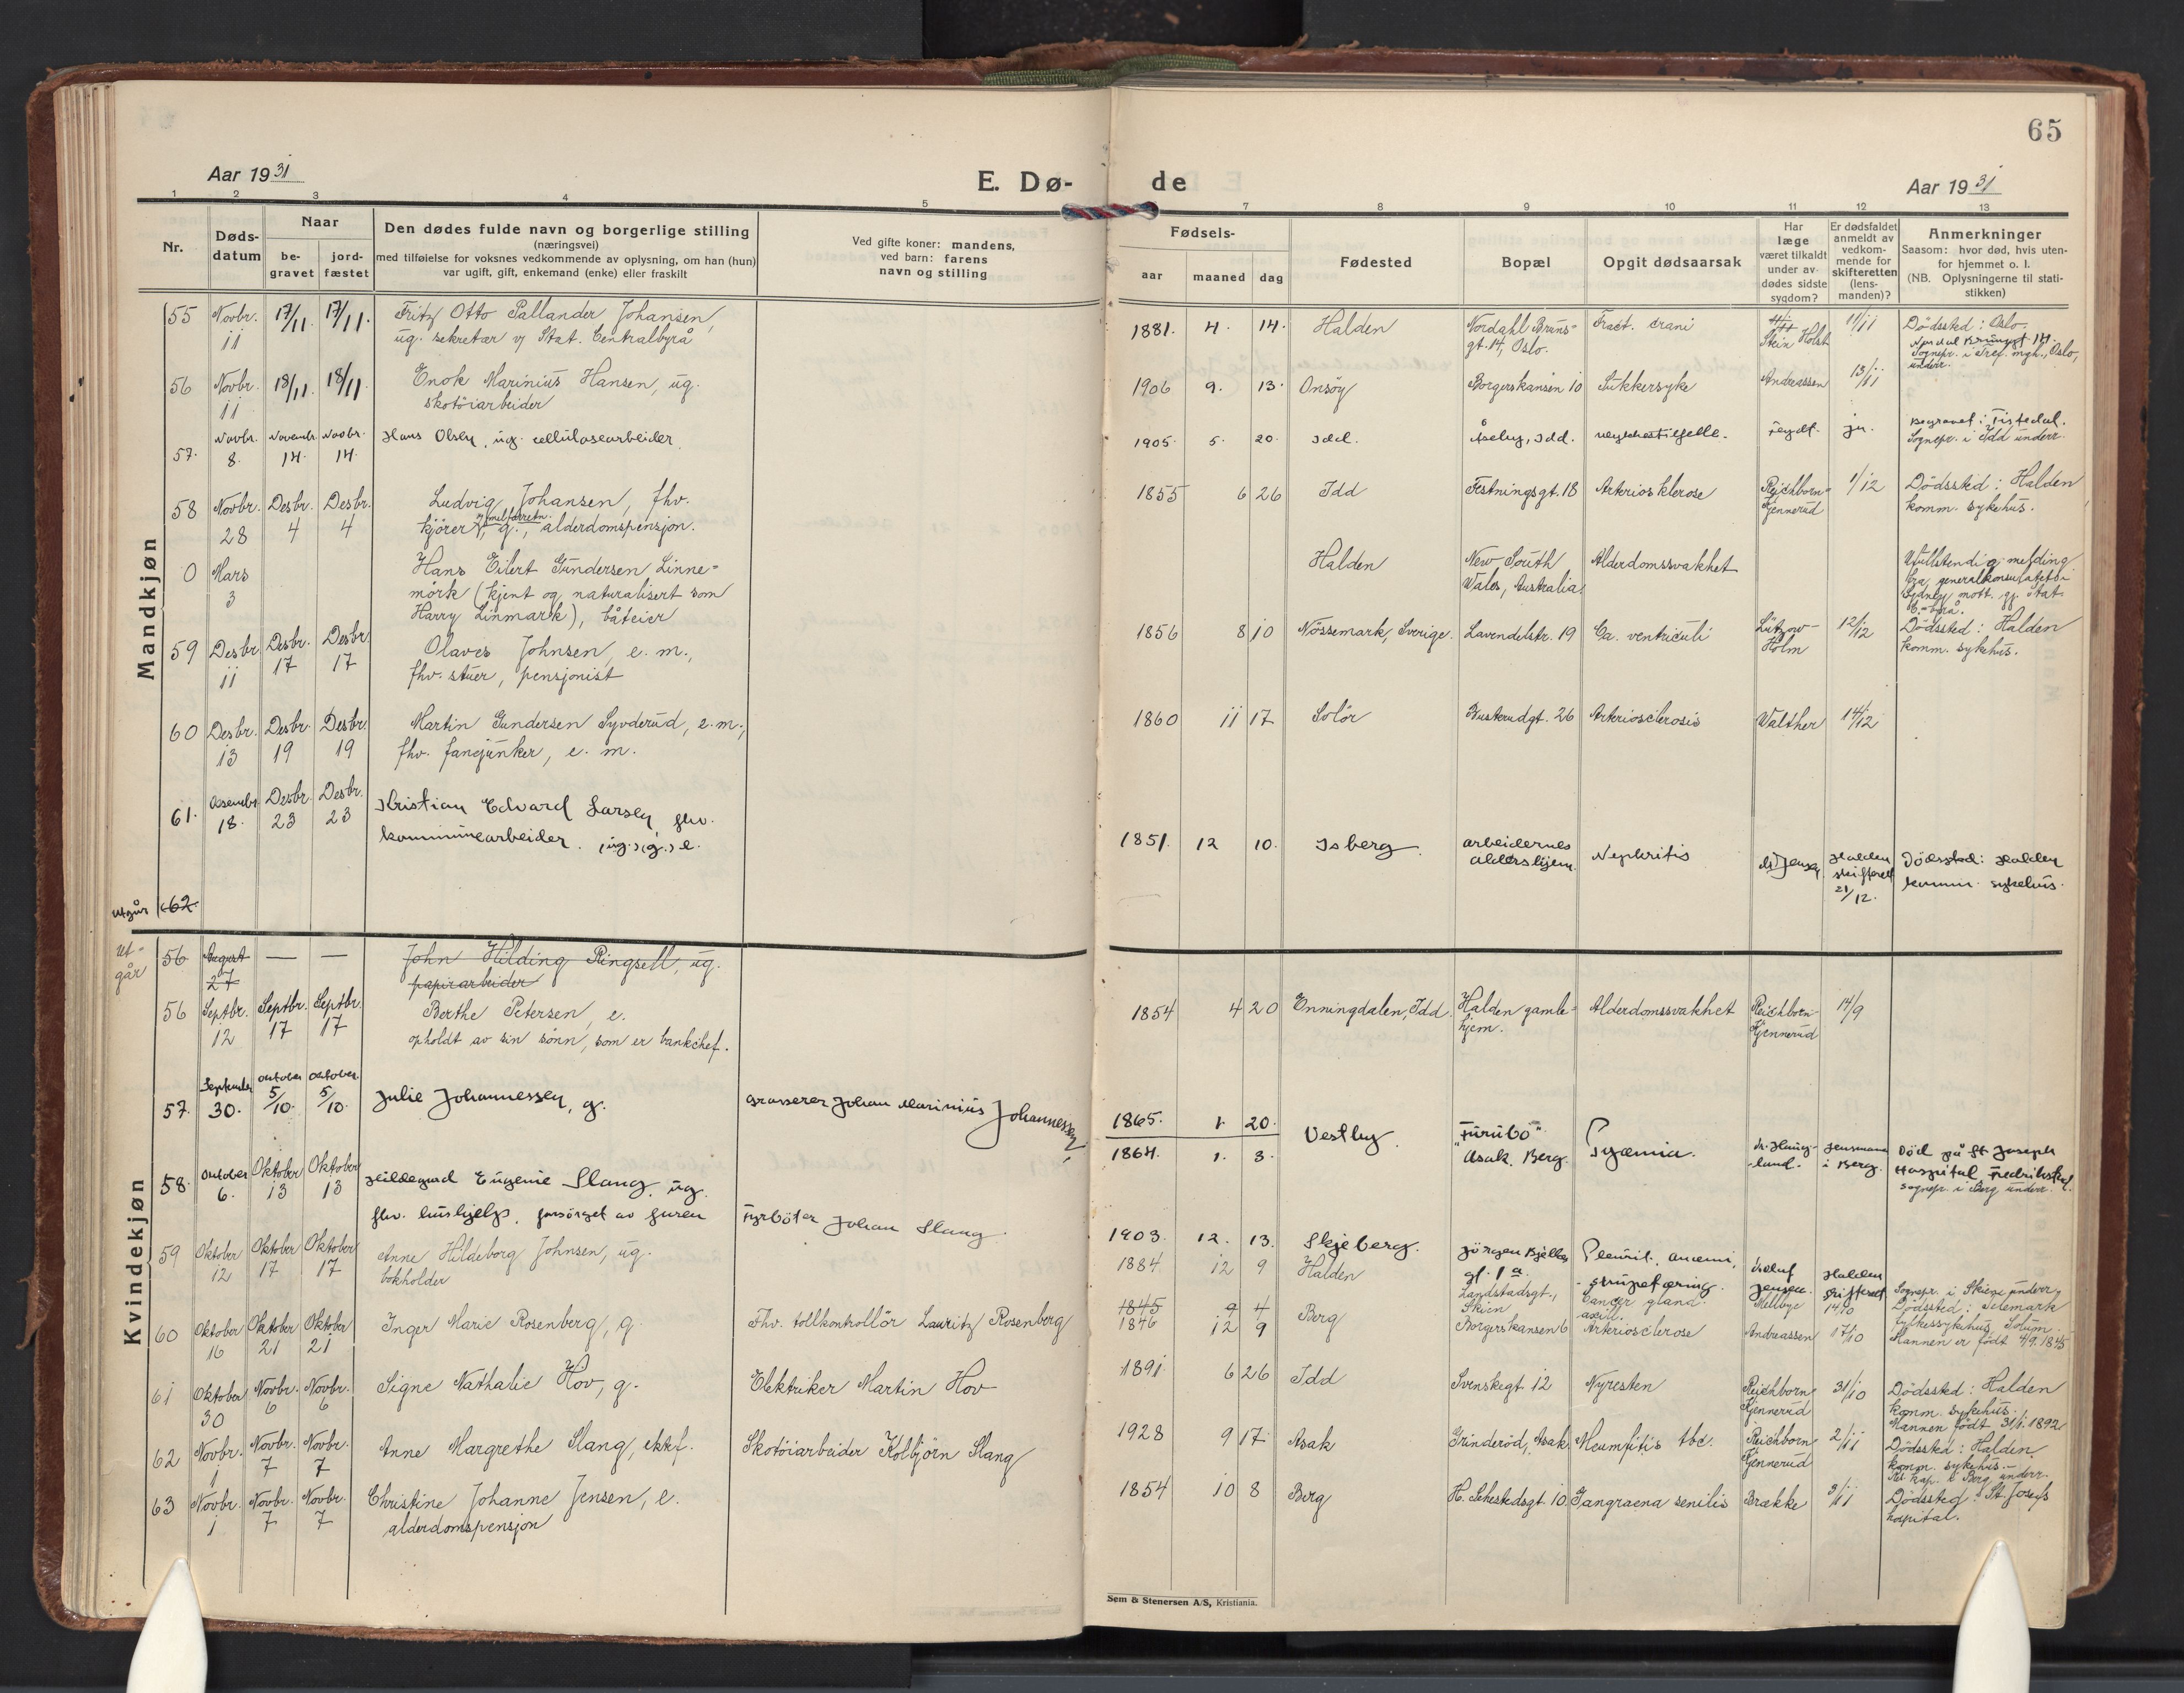 65
Aar 1931
E. Dø-
de
Aar 1931
1 2 3 4 5 7 8 9 10 11 12 13
Nr.
Døds-
datum
Naar
be-
gravet
jord-
fæstet
Den dødes fulde navn og borgerlige stilling
(næringsvei)
med tilføielse for voksnes vedkommende av oplysning, om han (hun)
var ugift, gift, enkemand (enke) eller fraskilt
Ved gifte koner: mandens,
ved barn: farens
navn og stilling
Fødsels-
aar
maaned
dag
Fødested
Bopæl
Opgit dødsaarsak
Har
læge
været tilkaldt
under av-
dødes sidste
sygdom?
Er dødsfaldet
anmeldt av
vedkom-
mende for
skifteretten
(lens-
manden)?
Anmerkninger
Saasom: hvor død, hvis uten-
for hjemmet o. l.
(NB. Oplysningerne til stati-
stikken)
Mandkjøn
55 Novbr. 11 17/11. 17/11. Fritz Otto Pallander Johansen,
ug. sekretær v/ Stat. Centralbyrå
1881. 4. 14. Halden
Nordahl Bruns-
gt. 14, Oslo.
Fract. crani
Stein Holst
11/11
Dödssted: Oslo.
Sognepr. i Tref. mgh., Oslo,
underr.
56 Novbr. 11 18/11. 18/11. Enok Marinius Hansen, ug.
skotöiarbeider
1906 9. 13. Onsöy Borgerskansen 10 Sukkersyke Andreassen 13/11
57. Novbr. 8. Novembr. 14. Novbr. 14. Hans Olsen, ug. cellulosearbeider.
1905. 5. 20. Idd. Åseby, Idd. ulykkestilfelle. ja.
Begravet i Tistedal.
Sognepr. i Idd underr.
58 Novbr. 28 Desbr. 4 Desbr. 4 Ludvig Johansen, fhv.
kjörer, g., alderdomspensjon.
1855 6 26 Idd Festningsgt. 18 Arteriosklerose
Reichborn-
Kjennerud
1/12
Dödssted: Halden
komm. sykehus.
0 Mars 3 Hans Eilert Gundersen Linne-
mörk (kjent og naturalisert som
Harry Linmark), båteier
Halden
New South
Wales, Australia.
Alderdomssvakhet
Ufullstendig melding
fra generalkonsulatet i
Sydney mott. gj. Stat.
C.-byrå.
59 Desbr. 11 Desbr. 17 Desbr. 17 Olaves Johnsen, e. m.,
fhv. stuer, pensjonist
1856 8 10 Nössemark, Sverige. Lavendelstr. 19 Ca. ventriculi
Lützow-
Holm
12/12
Dödssted: Halden
komm. sykehus.
60 Desbr. 13 Desbr. 19 Desbr. 19 Martin Gundersen Syvderud, e. m.,
fhv. fanejunker, e. m.
1860 11 17 Solör Buskrudgt. 26 Arteriosclerosis Walther 14/12
61. Desembr. 18. Desbr. 23 Desbr. 23 Kristian Edvard Larsen, fhv.
kommunearbeider. (ug.) (g.) e.
1851. 12 10. Isberg.
arbeidernes
aldershjem.
Nephritis
Halden
skifterett
21/12.
Dödssted: Halden
komm. sykehus.
utgår 62.
Kvindekjøn
ut-
går
56 August 27 — — John Hilding Ringsell, ug.
papirarbeider
56 Septbr. 12 Septbr. 17 Septbr. 17 Berthe Petersen, e.
opholdt av sin sönn, som er bankchef.
1854 4 20 Enningdalen, Idd.
Halden gamle-
hjem.
Alderdomssvakhet
Reichborn-
Kjennerud
14/9
57. September 30. oktober 5/10. oktober. 5/10. Julie Johannessen, g.
Grosserer Johan Marinius Johannessen,
1865. 1. 20.
1864. 1. 3.
Vestby.
"Furubo"
Asak, Berg.
Pyæmia.
dr. Haug-
land.
lensmann
i Berg.
Död på St. Joseph
Hospital Fredrikstad.
sognepr. i Berg underr.
58. Oktober 6. Oktober 13 Oktober 13 Hildegard Eugenie Slang, ug.
fhv. hushjelp, forsörget av faren
Fyrböter Johan Slang.
1903. 12. 13. Skjeberg.
Jörgen Bjelkes
gt. 1 a.
Pleurit. anæmi,
- strupetæring.
Halden
skifterett
59 Oktober 12 Oktober 17 Oktober 17 Anne Hildeborg Johnsen, ug.
bokholder
1884 12 9 Halden
Landstadsgt.,
Skien
Cancer gland.
axill.
Mellbye 14/10
Sognepr. i Skien underr.
Dödssted: Telemark
fylkessykehus, Solum.
60 Oktober 16 Oktober 21 Oktober 21 Inger Marie Rosenberg, g.
Fhv. tollkontrollör Lauritz Rosenberg
1845 9 4
1846 12 9
Berg Borgerskansen 6 Arteriosclerose Andreassen 17/10
Mannen er født 4/9. 1845
61 Oktober 30 Novbr. 6 Novbr. 6 Signe Nathalie Hov, g.
Elektriker Martin Hov
1891 6 26 Idd Svenskegt. 12 Nyresten
Reichborn
Kjennerud
31/10
Dödssted: Halden
komm. sykehus.
Mannen født 31/1. 1892
62 Novbr. 1 Novbr. 7 Novbr. 7 Anne Margrethe Slang, ektef.
Skotöiarbeider Kolbjörn Slang
1928 9 17 Asak Grinderöd, Asak Meningitis tbc.
Reichborn
Kjennerud
2/11
Dödssted: Halden
komm. sykehus.—
Res. kap. i Berg underr.
63 Novbr. 1 Novbr. 7 Novbr. 7 Christine Johanne Jensen, e.
alderdomspensjon
1854 10 8 Berg H. Sehestedsgt. 10. Gangraena senilis Brække 3/11
Dödssted: St. Josefs
hospital.
Sem & Stenersen A/S, Kristiania.